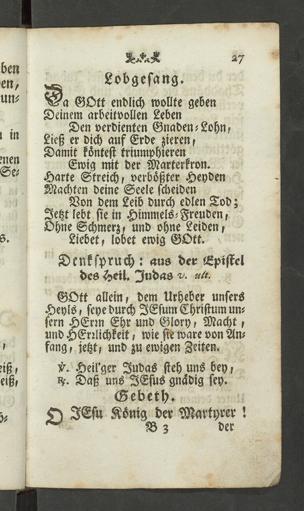 27
Lobgesang.
Da GOtt endlich wollte geben
Deinem arbeitvollen Leben
Den verdienten Gnaden-Lohn,
Ließ er dich auf Erde zieren,
Damit köntest triumphieren
Ewig mit der Marterkron.
Harte Streich, verbößter Heyden
Machten deine Seele scheiden
Von dem Leib durch edlen Tod;
Jetzt lebt sie in Himmels-Freuden,
Ohne Schmerz, und ohne Leiden,
Liebet, lobet ewig GOtt.
Denkspruch: aus der Epistel
des Heil. Judas v. ult.
GOtt allein, dem Urheber unsers
Heyls, seye durch JEsum Christum un-
sern HErrn Ehr und Glory, Macht,
und HErrlichkeit, wie sie ware von An-
fang, jetzt, und zu ewigen Zeiten.
℣. Heil'ger Judas steh uns bey,
℟. Daß uns JEsus gnädig sey.
Gebeth.
O JEsu König der Martyrer!
B 3 der